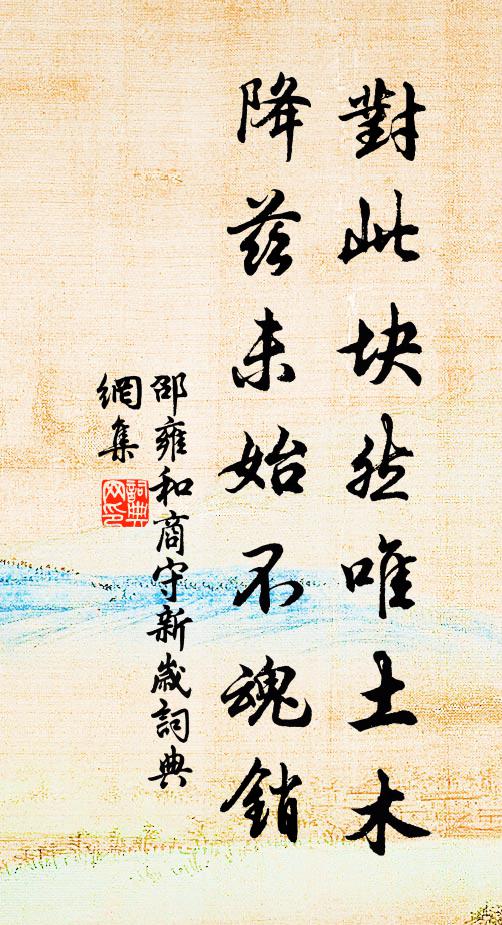 對此块然唯土木
降茲未始不魂銷
邵雍和商守新歲詞典
網集
詞典
网印